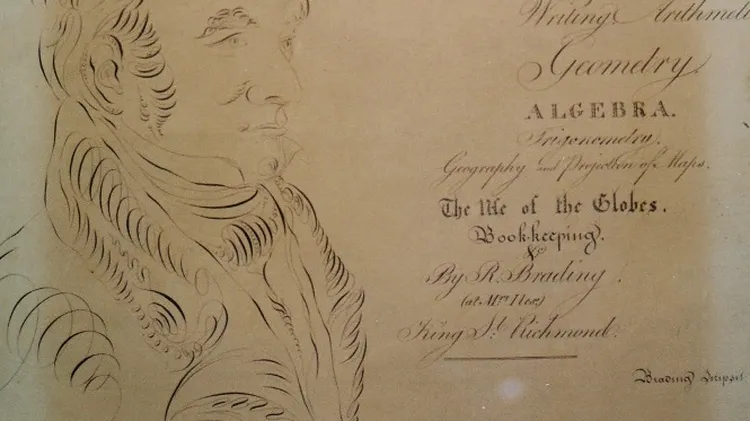 Writing, Arithmeti
Geometry.
ALGEBRA.
Trigonometry.
Geography and Projection of Maps.
The Use of the Globes.
Book-keeping.
&c
By R. Brading.
(at Mrs
King St. Richmond.
Brading Scripsit